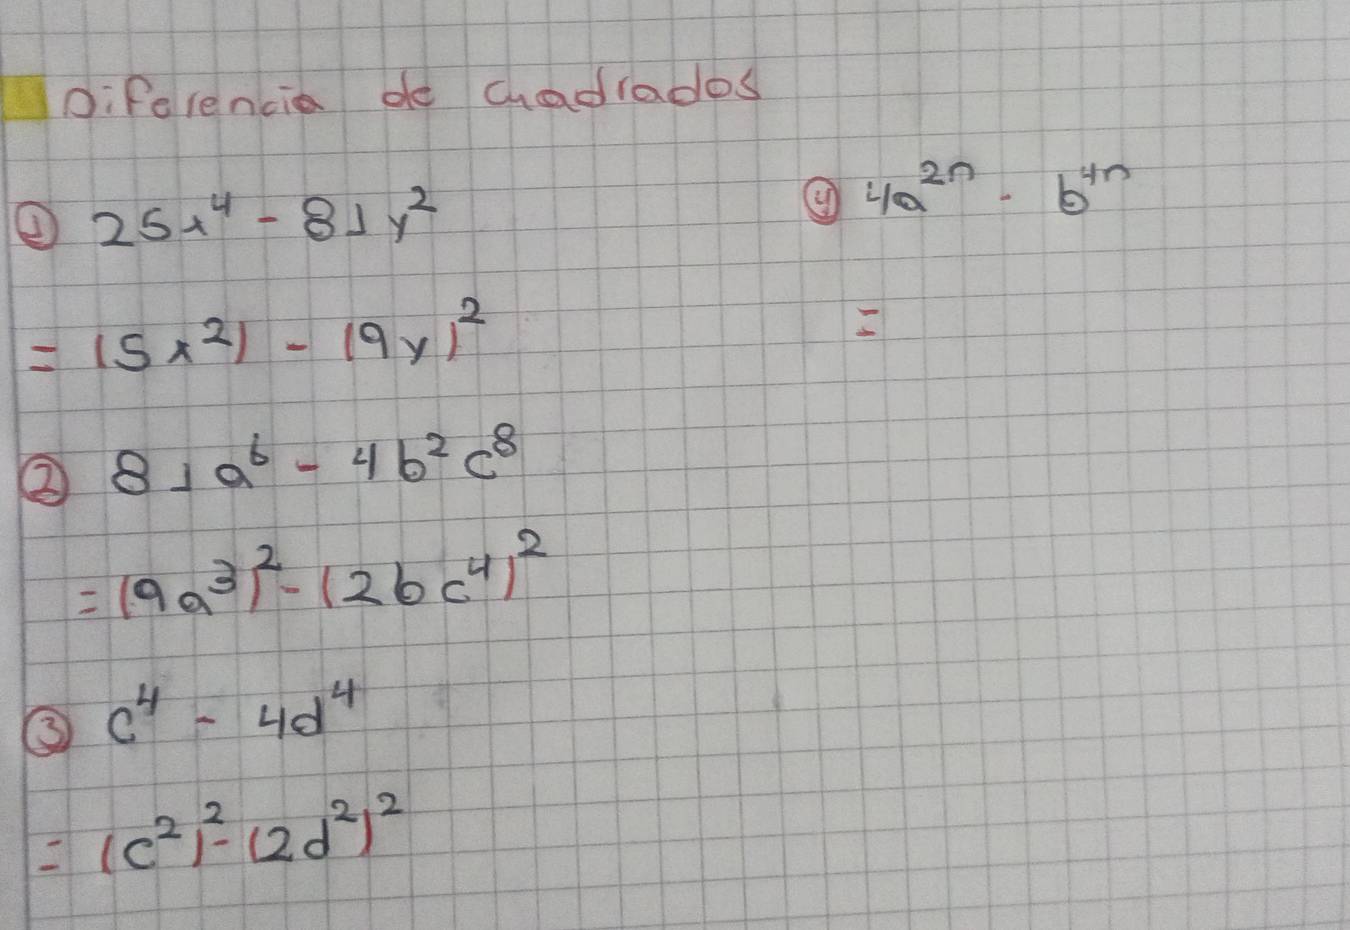 Diferencia de cuadrados
① 25x⁴ - 81y²
= (5x²) - (9y)²
② 81a⁶ - 4b²c⁸
= (9a³)² - (2bc⁴)²
③ c⁴ - 4d⁴
= (c²)² - (2d²)²
④ 4a²ⁿ - b⁴ⁿ
=